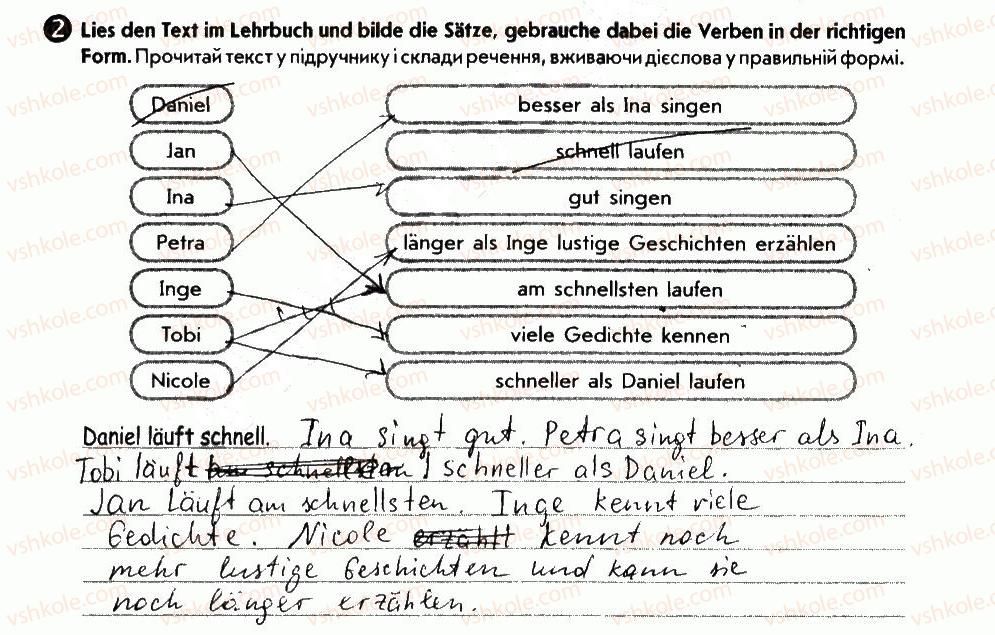 2 Lies den Text im Lehrbuch und bilde die Sätze, gebrauche dabei die Verben in der richtigen
Form. Прочитай текст у підручнику і склади речення, вживаючи дієслова у правильній формі.
Daniel
besser als Ina singen
Jan
schnell laufen
Ina
gut singen
Petra
länger als Inge lustige Geschichten erzählen
Inge
am schnellsten laufen
Tobi
viele Gedichte kennen
Nicole
schneller als Daniel laufen
Daniel läuft schnell. Ina singt gut. Petra singt besser als Ina.
Tobi läuft schneller als Daniel.
Jan läuft am schnellsten. Inge kennt viele
Gedichte. Nicole erzählt kennt noch
mehr lustige Geschichten und kann sie
noch länger erzählen.
vshkole.com